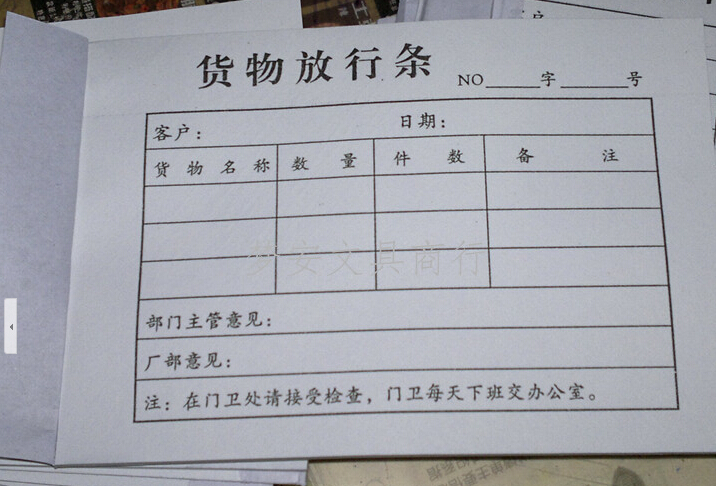 货物放行条
NO______字______号
客户： 日期：
货物名称 数量 件数 备注
安文具商行
部门主管意见：
厂部意见：
注：在门卫处请接受检查，门卫每天下班交办公室。